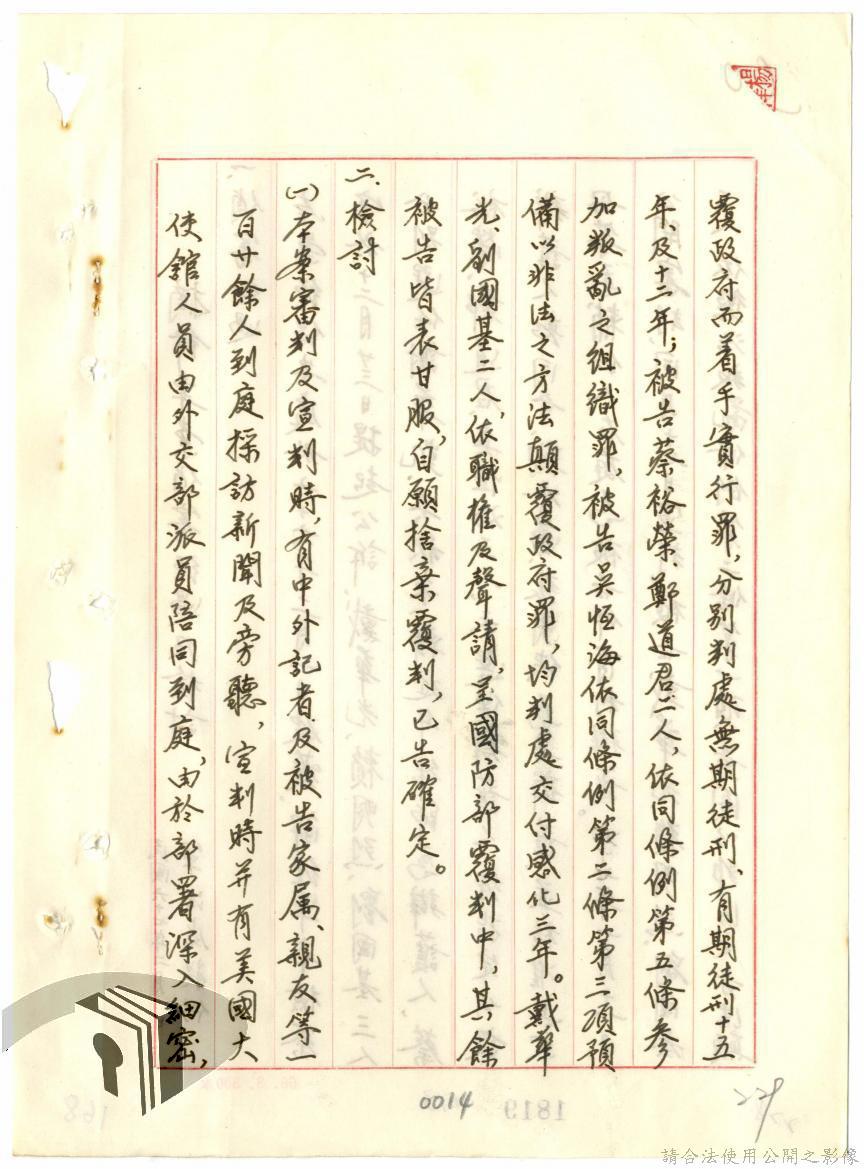 覆政府而着手實行罪，分別判處無期徒刑、有期徒刑十五
年、及十二年；被告蔡裕榮、鄭道君二人，依同條例第五條參
加叛亂之組織罪，被告吳恆海依同條例第二條第三項預
備以非法之方法顛覆政府罪，均判處交付感化三年。戴華
光、劉國基二人，依職權及聲請，呈國防部覆判中，其餘
被告皆表甘服，自願捨棄覆判，已告確定。
二、檢討
㈠本案審判及宣判時，有中外記者及被告家属、親友等一
百廿餘人到庭採訪新聞及旁聽，宣判時并有美國大
使館人員由外交部派員陪同到庭，由於部署深入細密，
0014
1819
229
168
請合法使用公開之影像